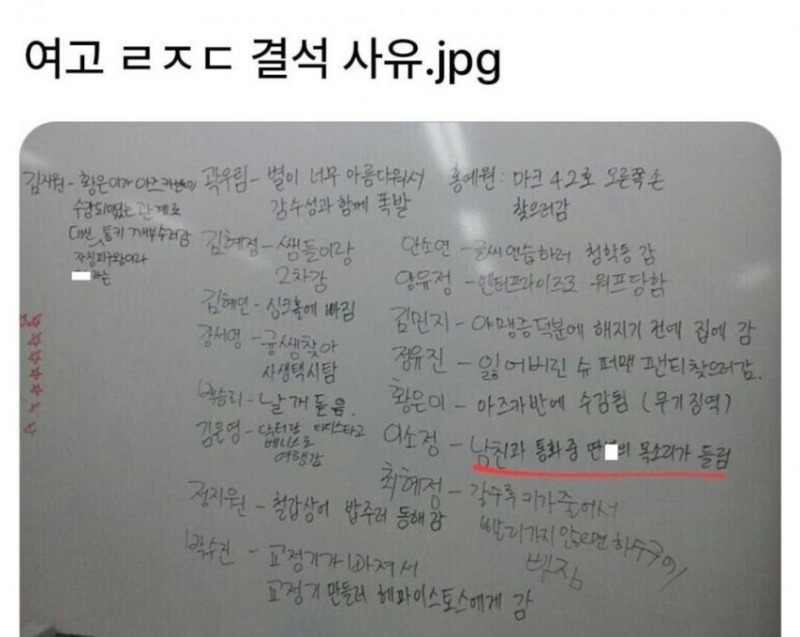 여고 ㄹㅈㄷ 결석 사유.jpg
김지원 - 황은이가 아즈카반에
수감되었는 관계로
대신 통키 기부수러감
자칭피구왕이라
하는
곽우림 - 별이 너무 아름다워서
감수성과 함께 폭발
김혜정 - 쌤들이랑
2차감
김혜연 - 싱크홀에 빠짐
강서영 - 궁쌤찾아
사생택시탐
류승리 - 날개 돋음
김은영 - 닥터랑 타디스타고
베니스로
여행감
정지원 - 철갑상어 밥주러 동해감
박수진 - 교정기가 빠져서
교정기 만들러 헤파이스토스에게 감
홍예원 : 마크 42호 오른쪽 손
찾으러감
안소연 - 글씨연습하러 청학동 감
양유정 - 엔터프라이즈호로 워프당함
김민지 - 야맹증덕분에 해지기 전에 집에 감
정유진 - 잃어버린 슈퍼맨 팬티찾으러감.
황은이 - 아즈카반에 수감됨 (무기징역)
이소정 - 남친과 통화중 딴 의 목소리가 들림
최혜정 - 갈수록 키가 줄어서
빨리가지 않으면 하수구에
빠짐